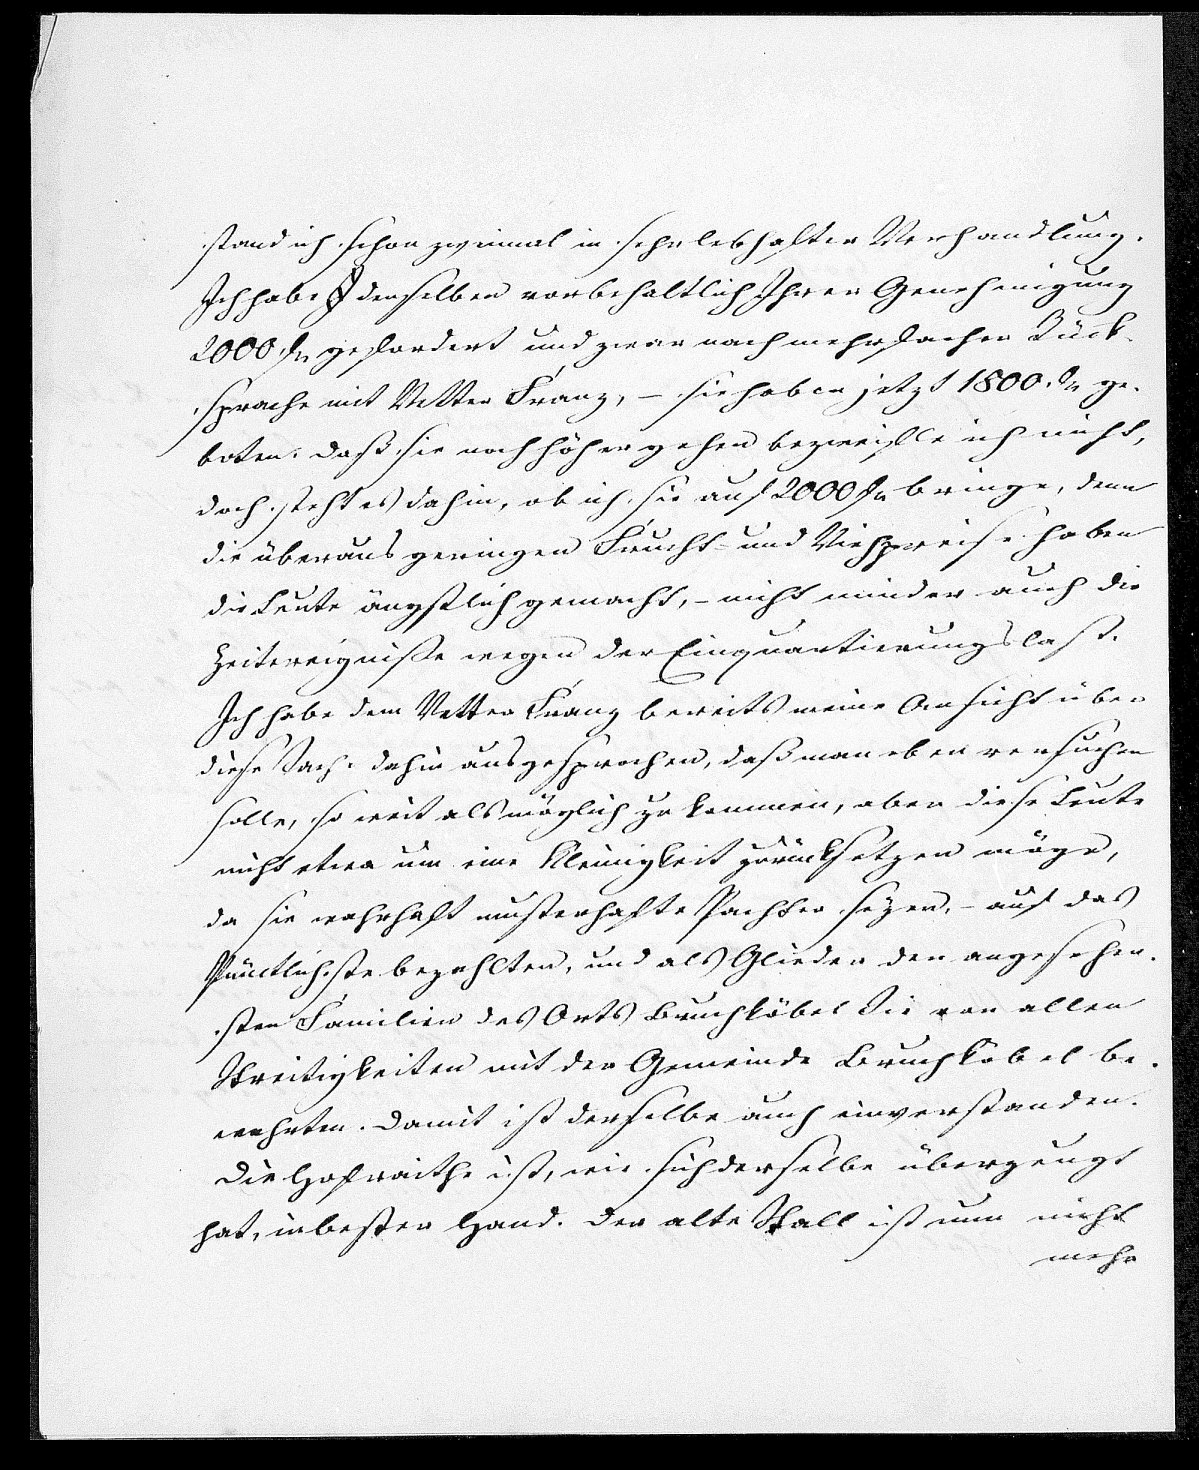 stand ich schon zweimal in sehr lebhafter Verhandlung.
Ich habe denselben vorbehaltlich Ihrer Genehmigung
2000 fr gefordert und zwar nach mehrfacher Rück-
sprache mit Vetter Franz, – sie haben jetzt 1800 fr ge-
boten. Daß sie noch höher gehen bezweifle ich nicht,
doch steht es dahin, ob ich sie auf 2000 fr bringe, denn
die überaus geringen Frucht- und Viehpreise haben
die Leute ängstlich gemacht, – nicht minder auch die
Zeitereigniße wegen der Einquartierungslast.
Ich habe dem Vetter Franz bereits meine Ansicht über
diese Sache dahin ausgesprochen, daß man eben versuchen
solle, so weit als möglich zu kommen, aber diese Leute
nicht etwa um eine Kleinigkeit zurücksetzen möge,
da sie wahrhaft musterhafte Pachter seyen, – auf das
Pünctlichste bezahlten, und als Glieder der angesehen-
sten Familien des Orts Bruchköbel Sie von allen
Streitigkeiten mit der Gemeinde Bruchköbel be-
wahrten. Damit ist derselbe auch einverstanden.
Die Hofraithe ist, wie sich derselbe überzeugt
hat, in bester Hand. Der alte Stall ist nun nicht
mehr